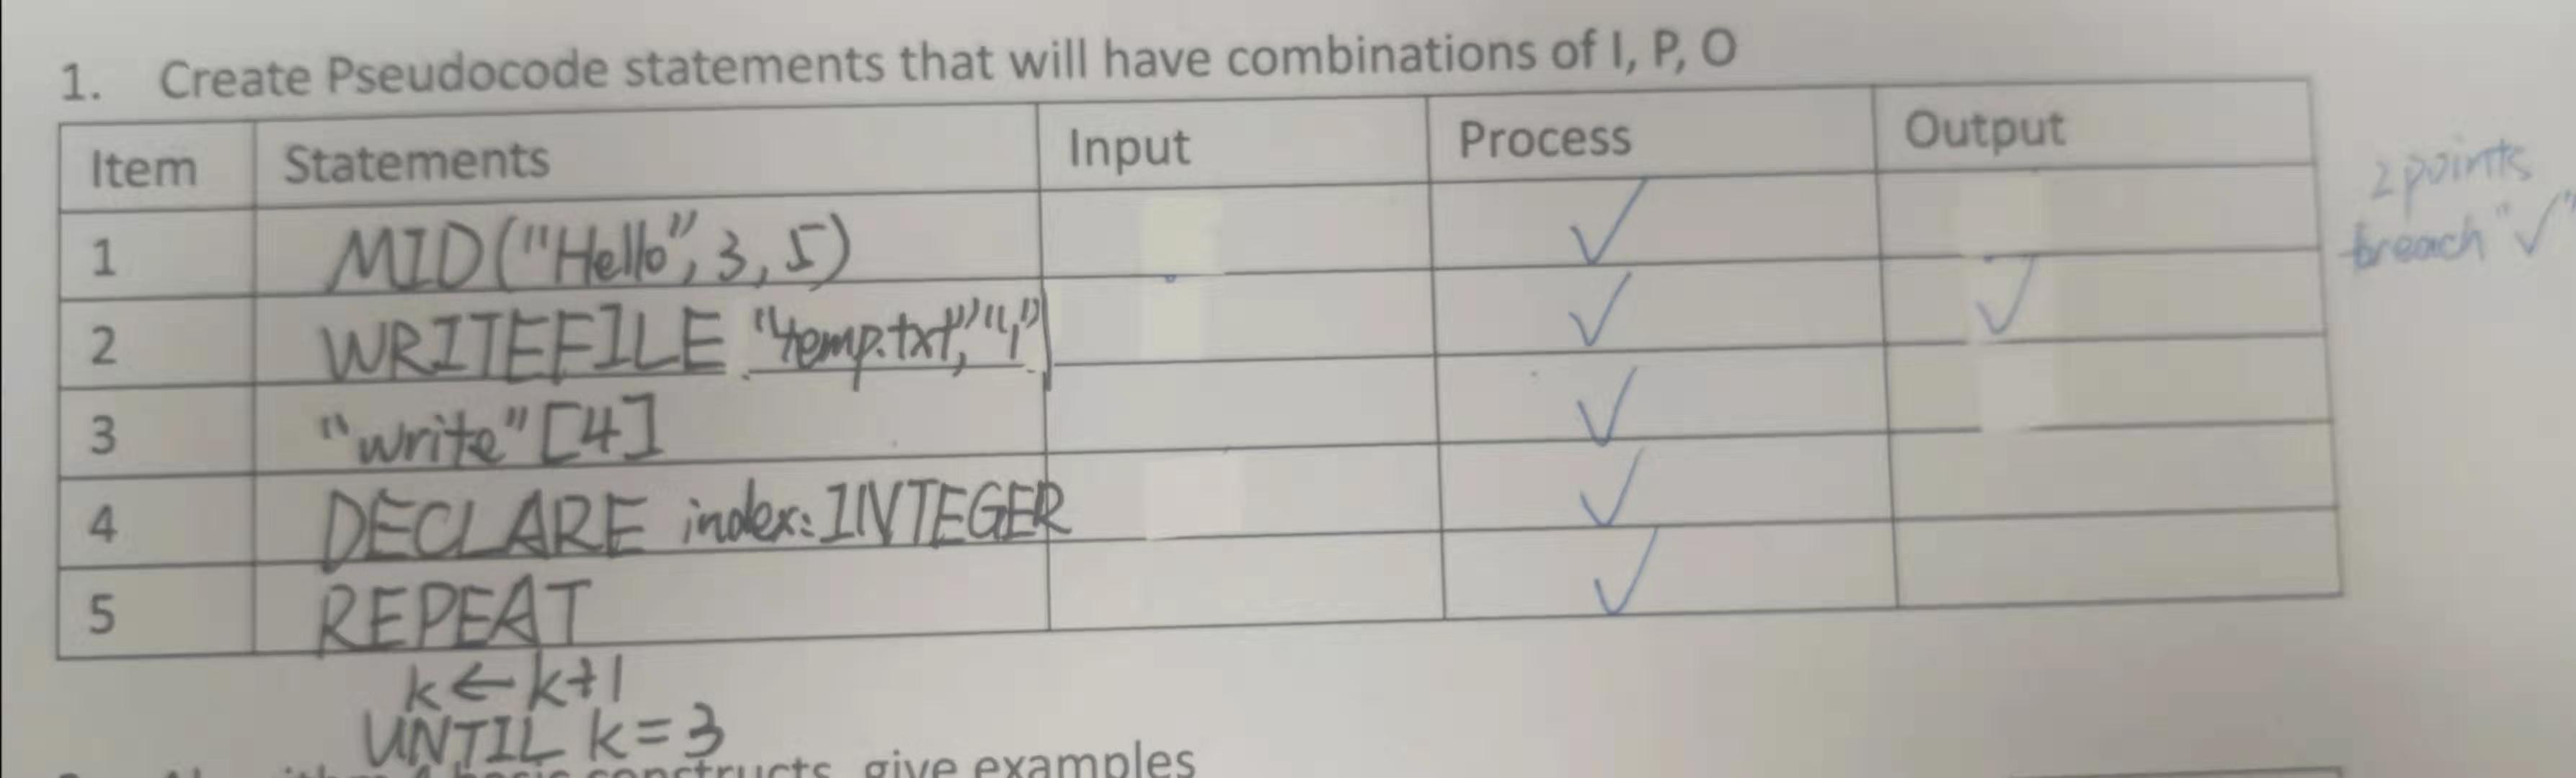 1. Create Pseudocode statements that will have combinations of I, P, O
Item Statements Input Process Output
2 points
breach "✓"
1 MID("Hello", 3, 5) ✓
2 WRITEFILE "temp.txt", "1" ✓ ✓
3 "write"[4] ✓
4 DECLARE index: INTEGER ✓
5 REPEAT ✓
k ← k+1
UNTIL k = 3
constructs, give examples